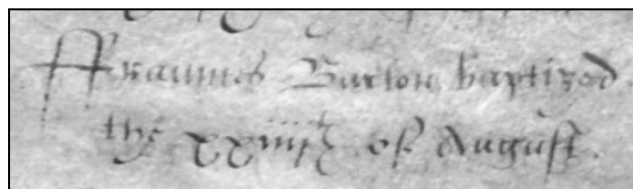 ffraunces Burton baptized
the xxiiijth of August.